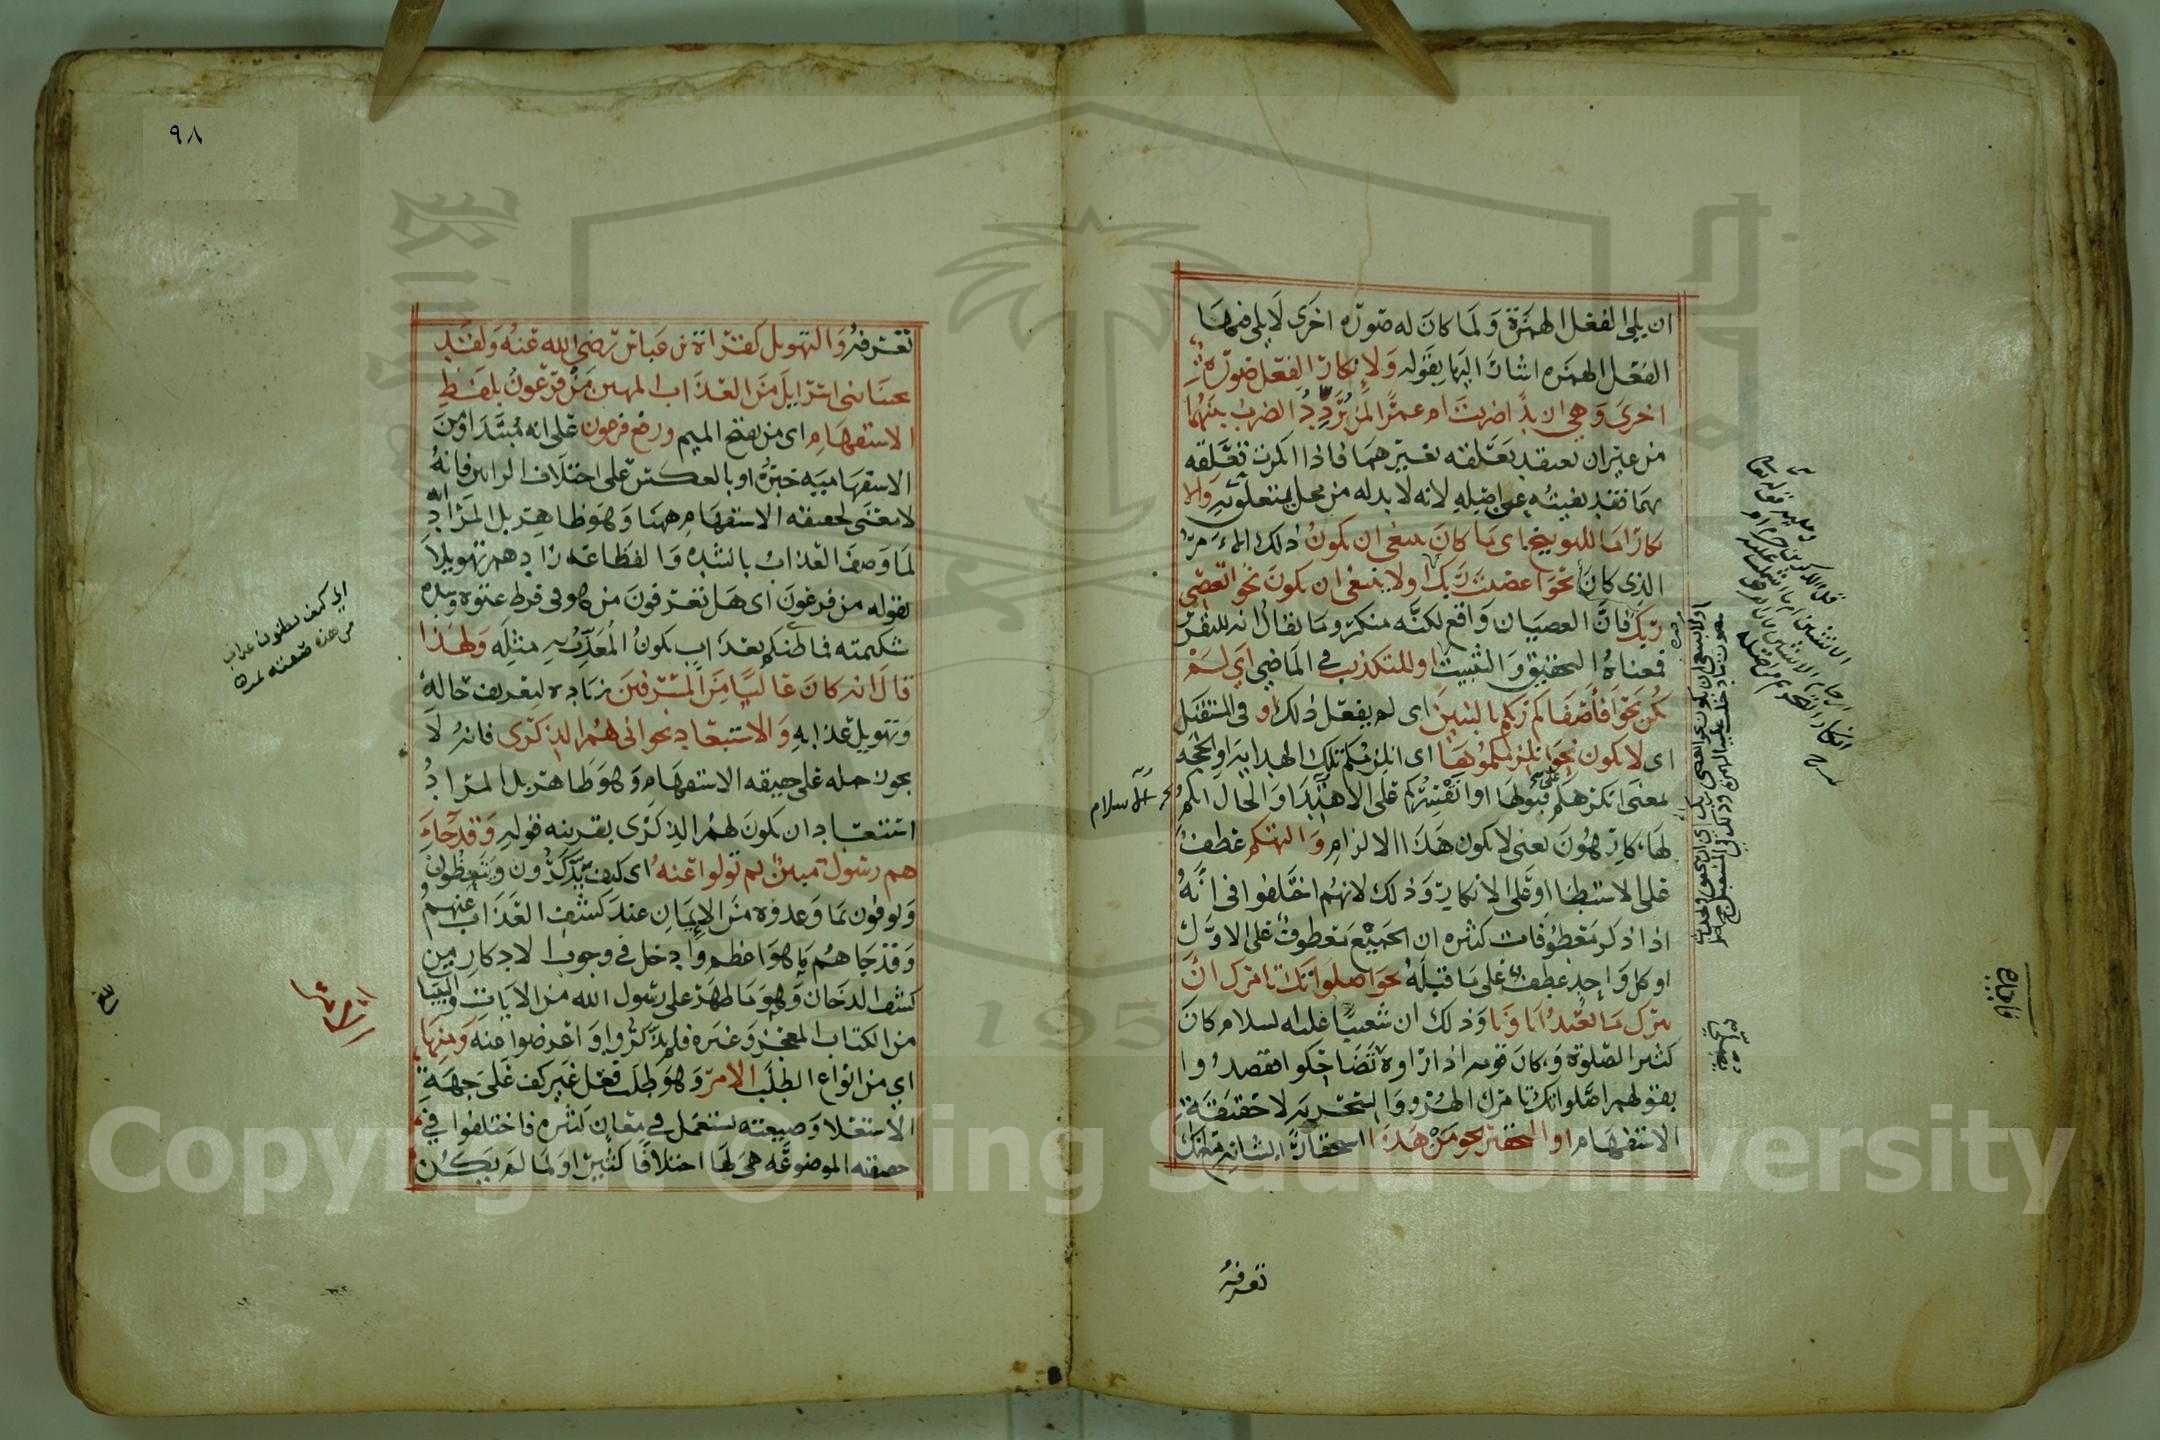 ان يلي الفعل الهمزة ولما كان له صورة اخرى لا يلي فيها
الفعل الهمزه اشار اليها بقوله ولانكار الفعل صورة
اخرى وهي ازيدا ضربت ام عمرا لمن يردد الضرب بينهما
من غير ان يعتقد تعلقه بغيرهما فاذا انكرت تعلقه
بهما فقد نفيته عن اصله لانه لا بد له من محل يتعلق به والا
نكار اما للتوبيخ اى ما كان ينبغى ان يكون ذلك الامر
الذى كان نحو اعصيت ربك او لا ينبغى ان يكون نحو اتعصى
ربك فان العصيان واقع لكنه منكر وما يقال انه للتقرير
فمعناه التحقيق والتثبيت او للتكذيب في الماضي اي لم
يكن نحو افاصفاكم ربكم بالبنين اى لم يفعل ذلك او في المستقبل
اى لا يكون نحو انلزمكموها اى انلزمكم تلك الهداية او الحجه
بمعنى انكرهكم على قبولها او انقسركم على الاهتداء والحال انكم
لها كارهون يعنى لا يكون هذا الالزام والتهكم عطف
على الاستبطا او على الانكار وذلك لانهم اختلفوا فى انه
اذا ذكر معطوفات كثيره ان الجميع معطوف على الاول
او كل واحد عطف على ما قبله نحو اصلواتك تامرك ان
نترك ما يعبد اباؤنا وذلك ان شعيبا عليه السلام كان
كثير الصلوة وكان قومه اذا راوه تضاحكوا فقصدوا
بقولهم اصلواتك تامرك الهزو والسخرية لا حقيقة
الاستفهام او التحقير نحو من هذا استحقارا لشانه مع انك
تعرفه
تعرفه والتهويل كقراة بن عباس رضى الله عنه ولقد
نجينا بنى اسرايل من العذاب المهين من فرعون بلفظ
الاستفهام اى من بفتح الميم ورفع فرعون على انه مبتدا ومن
الاستفهامية خبره او بالعكس على اختلاف الرايين فانه
لا معنى لحقيقة الاستفهام ههنا وهو ظاهر بل المراد انه
لما وصف العذاب بالشده والفظاعه زادهم تهويلا
بقوله من فرعون اى هل تعرفون من هو فى فرط عتوه وشده
شكيمته فما ظنكم بعذاب يكون المعذب به مثله ولهذا
قال انه كان عاليا من المسرفين زيادة لتعريف حاله
وتهويل عذابه والاستبعاد نحو انى لهم الذكرى فانه لا
يجوز حمله على حقيقه الاستفهام وهو ظاهر بل المراد
استبعاد ان يكون لهم الذكرى بقرينه قوله وقد جاء
هم رسول مبين ثم تولوا عنه اى كيف يذكرون ويتعظون
ويوفون بما وعدوه من الايمان عند كشف العذاب عنهم
وقد جاهم ما هو اعظم وادخل في وجوب الادكار من
كشف الدخان وهو ما ظهر على رسول الله من الايات والبينات
من الكتاب المعجز وغيره فلم يذكروا واعرضوا عنه ومنها
اي من انواع الطلب الامر وهو طلب فعل غير كف على جهة
الاستعلا وصيغته تستعمل في معان كثيره فاختلفوا في
حقيقته الموضوعة هي لها اختلافا كثيرا ولما لم يكن
٩٨
1957
Copyright © King Saud University